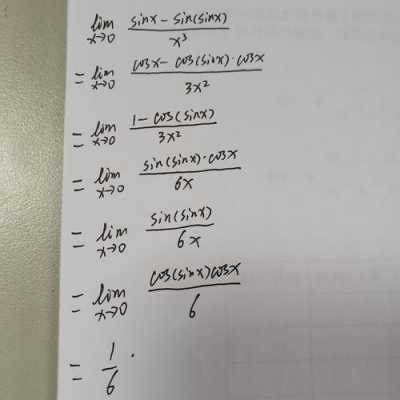 lim x→0 (sinx - sin(sinx)) / x³
= lim x→0 (cosx - cos(sinx)·cosx) / 3x²
= lim x→0 (1 - cos(sinx)) / 3x²
= lim x→0 (sin(sinx)·cosx) / 6x
= lim x→0 sin(sinx) / 6x
= lim x→0 (cos(sinx)cosx) / 6
= 1/6.